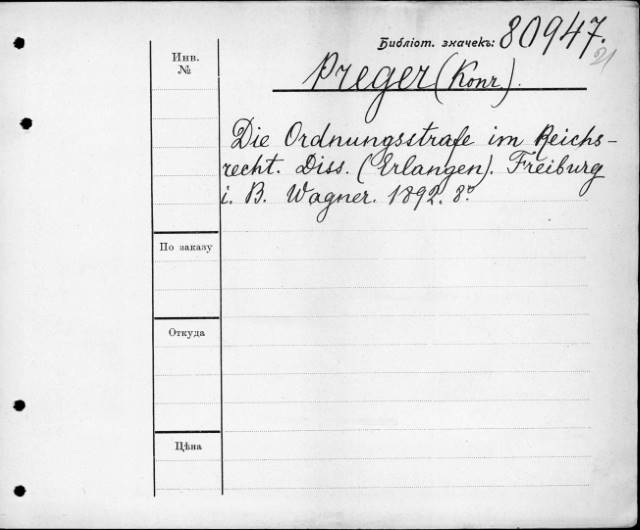 Библіот. значекъ: 80947.
21
Инв.
№
Preger (Konr).
Die Ordnungsstrafe im Reichs-
recht. Diss. (Erlangen). Freiburg
i. B. Wagner. 1892. 8º.
По заказу
Откуда
Цѣна